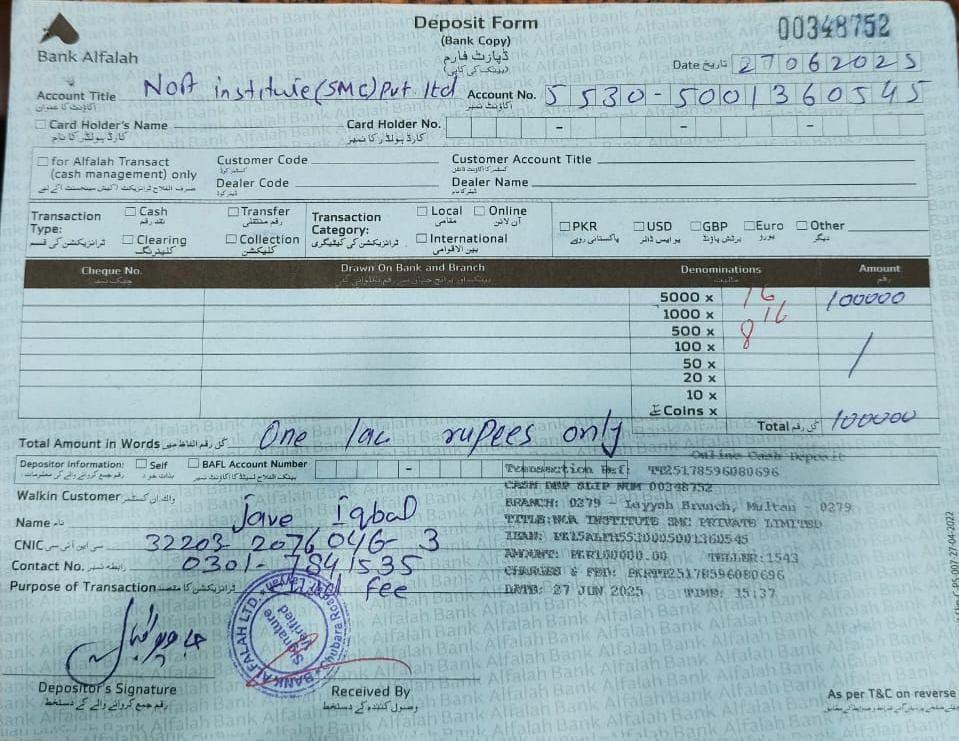 Deposit Form
00348752
(Bank Copy)
ڈپازٹ فارم
(بینک کی کاپی)
Bank Alfalah
Date تاریخ 27062025
Account Title
Account No. 5530-5001360545
institute (SMC) Pvt. ltd
اکاؤنٹ کا عنوان
اکاؤنٹ نمبر
Card Holder's Name Card Holder No. - - -
کارڈ ہولڈر کا نام کارڈ ہولڈر کا نمبر
for Alfalah Transact Customer Code Customer Account Title
(cash management) only Dealer Code Dealer Name
Transaction Type: Cash Transfer Transaction Category: Local Online PKR USD GBP Euro Other
نقد رقم رقم منتقلی مقامی آن لائن پاکستانی روپے یو ایس ڈالر برٹش پاؤنڈ یورو دیگر
Clearing Collection International
ٹرانزیکشن کی قسم کلیئرنگ کلیکشن ٹرانزیکشن کی کیٹیگری بین الاقوامی
Cheque No. Drawn On Bank and Branch Denominations Amount
چیک نمبر مالیت رقم
5000 x 16 100000
1000 x 16
500 x 8
100 x
50 x
20 x
10 x
Coins x
Total کل رقم 100000
Total Amount in Words کل رقم الفاظ میں One lac rupees only
Depositor Information: Self BAFL Account Number -
Online Cash Deposit
Transaction Ref: TT25178596080696
Walkin Customer واک اِن کسٹمر
CASH DEP SLIP NUM 00348752
BRANCH: 0279 - Layyah Branch, Multan - 0279
Name نام Iqbal
TITLE: INSTITUTE SMC PRIVATE LIMITED
CNIC سی این آئی سی 32203 2076046-3
Contact No. رابطہ نمبر 0301-7841535
AMOUNT: PKR100000.00 TELLER:1543
CHARGES & FED: PKRTT25178596080696
Purpose of Transaction ٹرانزیکشن کا مقصد Fee
DATE: 27 JUN 2025 TIME: 15:37
BANK ALFALAH LTD.
Signature Verified
Depositor's Signature Received By
رقم جمع کروانے والے کے دستخط وصول کنندہ کے دستخط
As per T&C on reverse